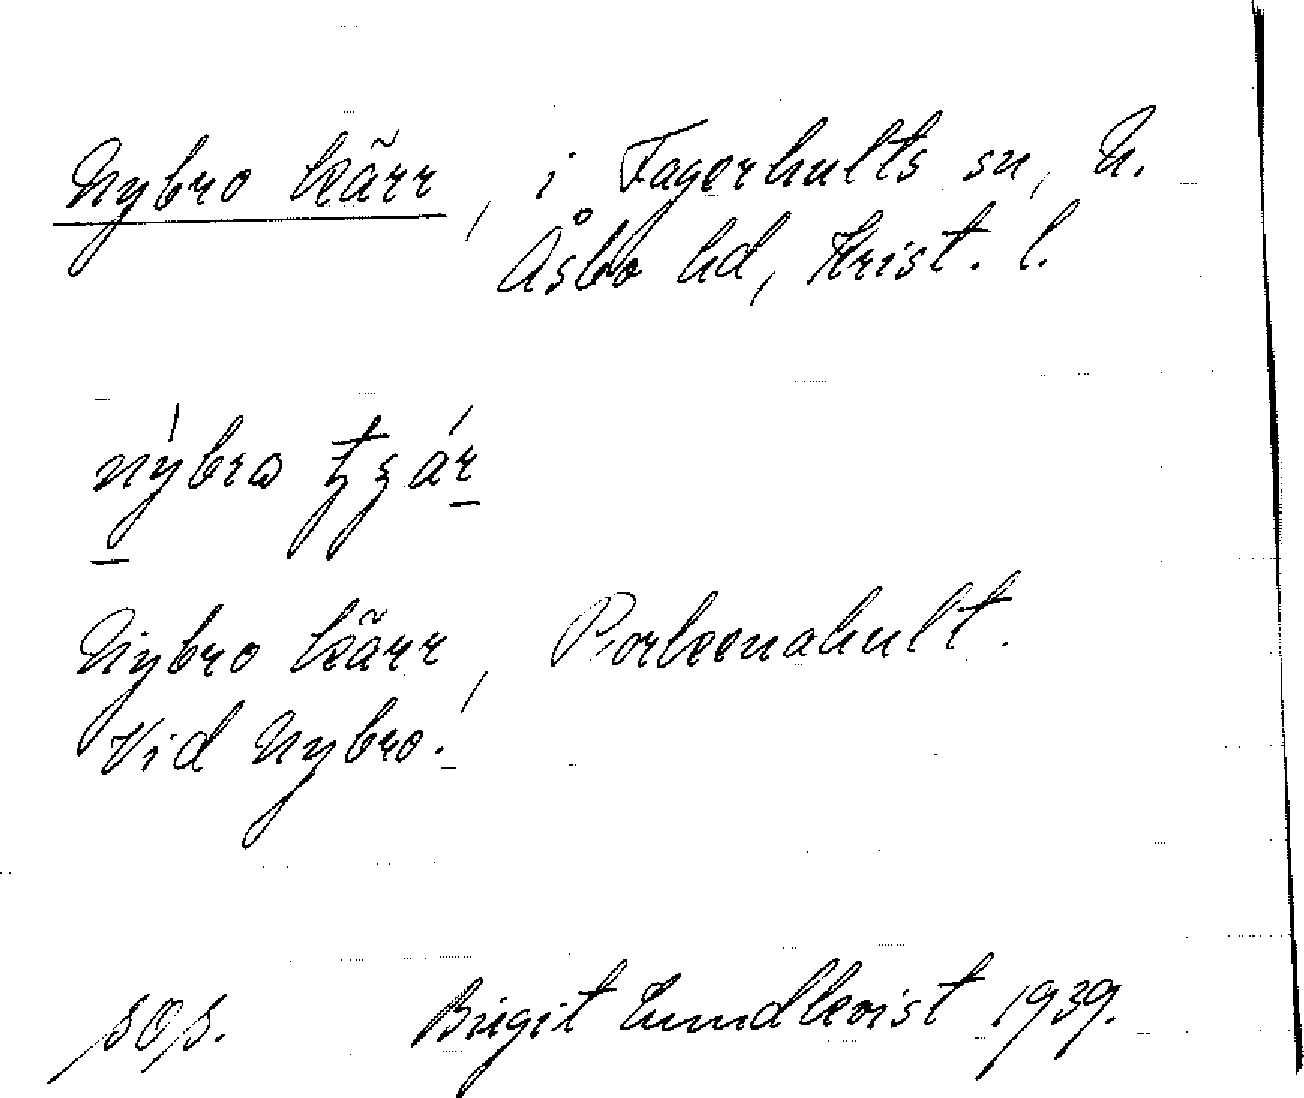 Nybro kärr, i Fagerhults sn, N.
Åsbo hd, Krist. l.
Nybro kärr, Porkenahult.
Vid Nybro.
sop. Birgit Lundkvist 1939.